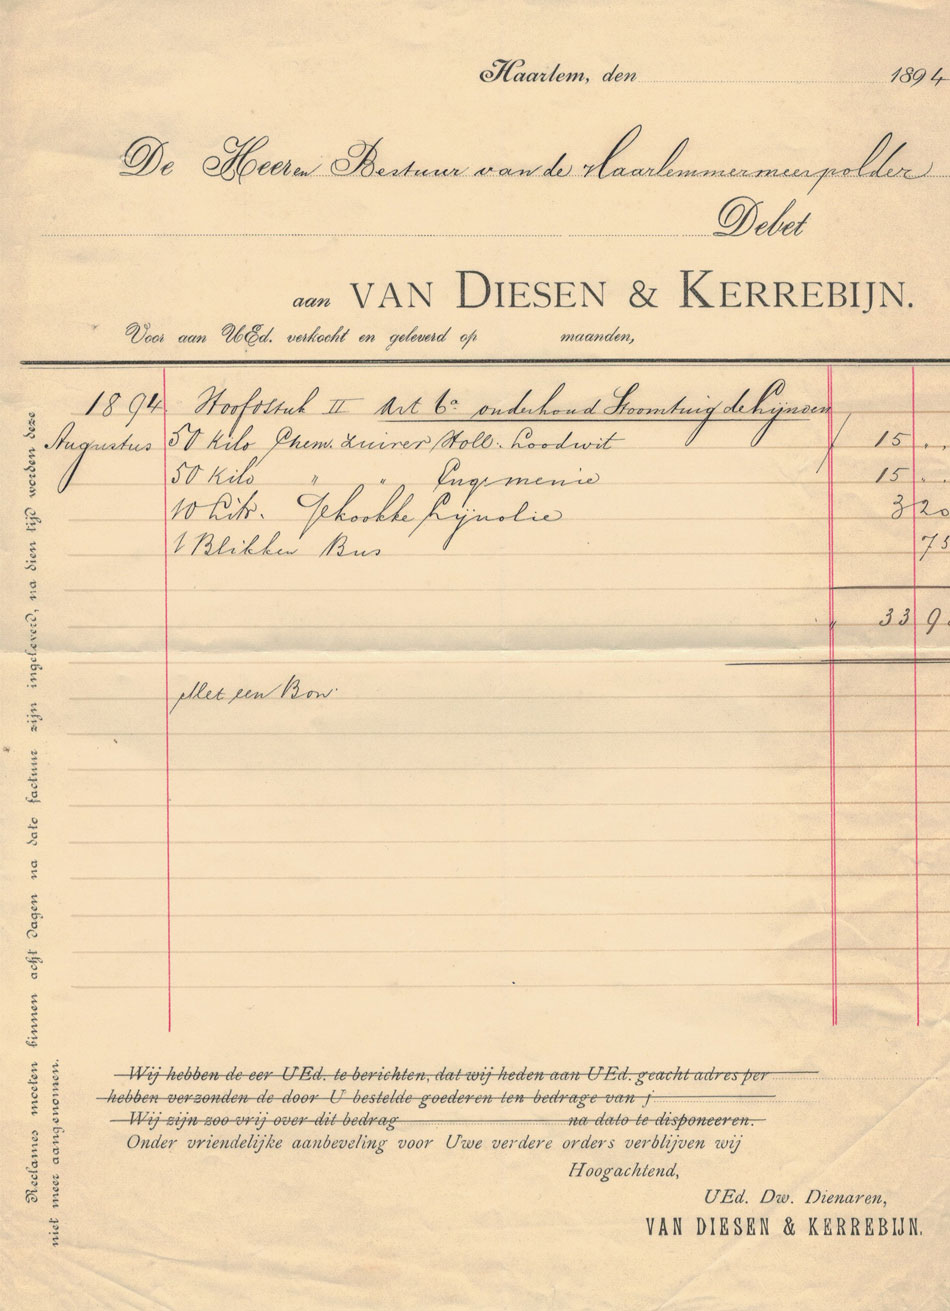 Haarlem, den 1894
De Heeren Bestuur van de Haarlemmermeerpolder
Debet
aan VAN DIESEN & KERREBIJN.
Voor aan UEd. verkocht en geleverd op maanden,
1894 Hoofdstuk II Art 6a onderhoud Stoomtuig de Lijnden
Augustus 50 Kilo Chem. zuiver Holl. Loodwit f 15 . .
50 Kilo " " Eng. menie 15 . .
10 Litr. Gekookte Lijnolie 3 20
1 Blikken Bus 75
" 33 9
Met een Bon.
Wij hebben de eer UEd. te berichten, dat wij heden aan UEd. geacht adres per
hebben verzonden de door U bestelde goederen ten bedrage van f
Wij zijn zoo vrij over dit bedrag na dato te disponeeren.
Onder vriendelijke aanbeveling voor Uwe verdere orders verblijven wij
Hoogachtend,
UEd. Dw. Dienaren,
VAN DIESEN & KERREBIJN.
Reclames moeten binnen acht dagen na dato factuur zijn ingeleverd, na dien tijd worden deze
niet meer aangenomen.